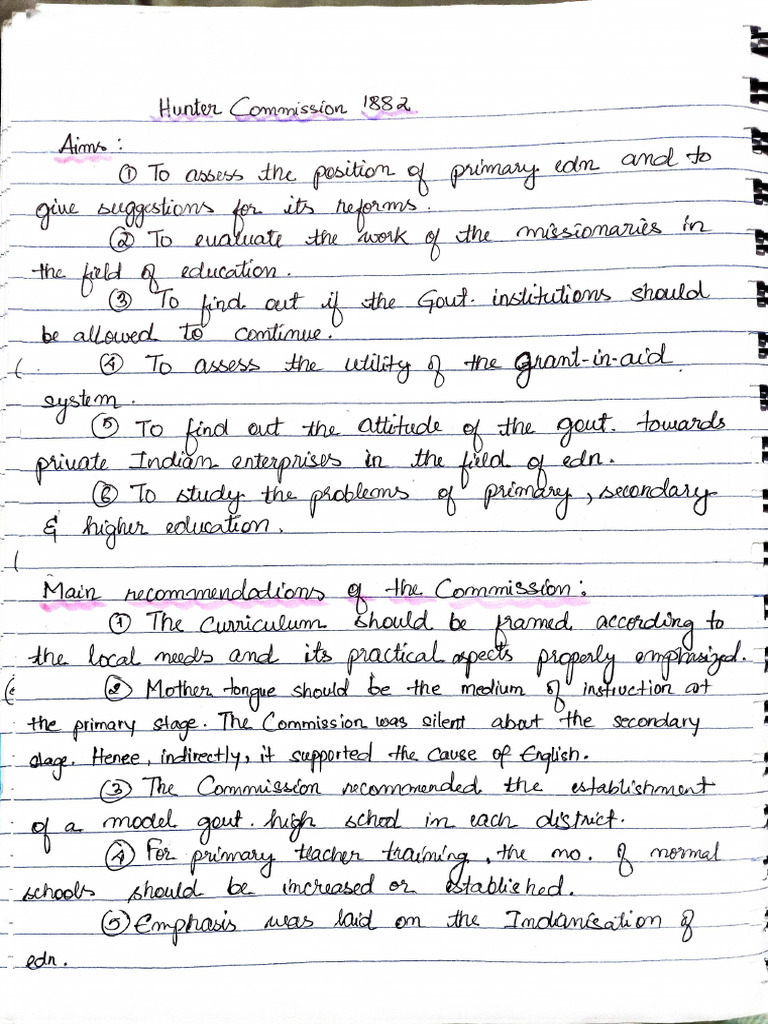 Hunter Commission 1882
Aims :
① To assess the position of primary edn and to
give suggestions for its reforms.
② To evaluate the work of the missionaries in
the field of education.
③ To find out if the Govt. institutions should
be allowed to continue.
④ To assess the utility of the grant-in-aid
system.
⑤ To find out the attitude of the govt. towards
private Indian enterprises in the field of edn.
⑥ To study the problems of primary, secondary
& higher education.
Main recommendations of the Commission:
① The Curriculum should be framed according to
the local needs and its practical aspects properly emphasized.
② Mother tongue should be the medium of instruction at
the primary stage. The Commission was silent about the secondary
stage. Hence, indirectly, it supported the cause of English.
③ The Commission recommended the establishment
of a model govt. high school in each district.
④ For primary teacher training, the no. of normal
schools should be increased or established.
⑤ Emphasis was laid on the Indanisation of
edn.